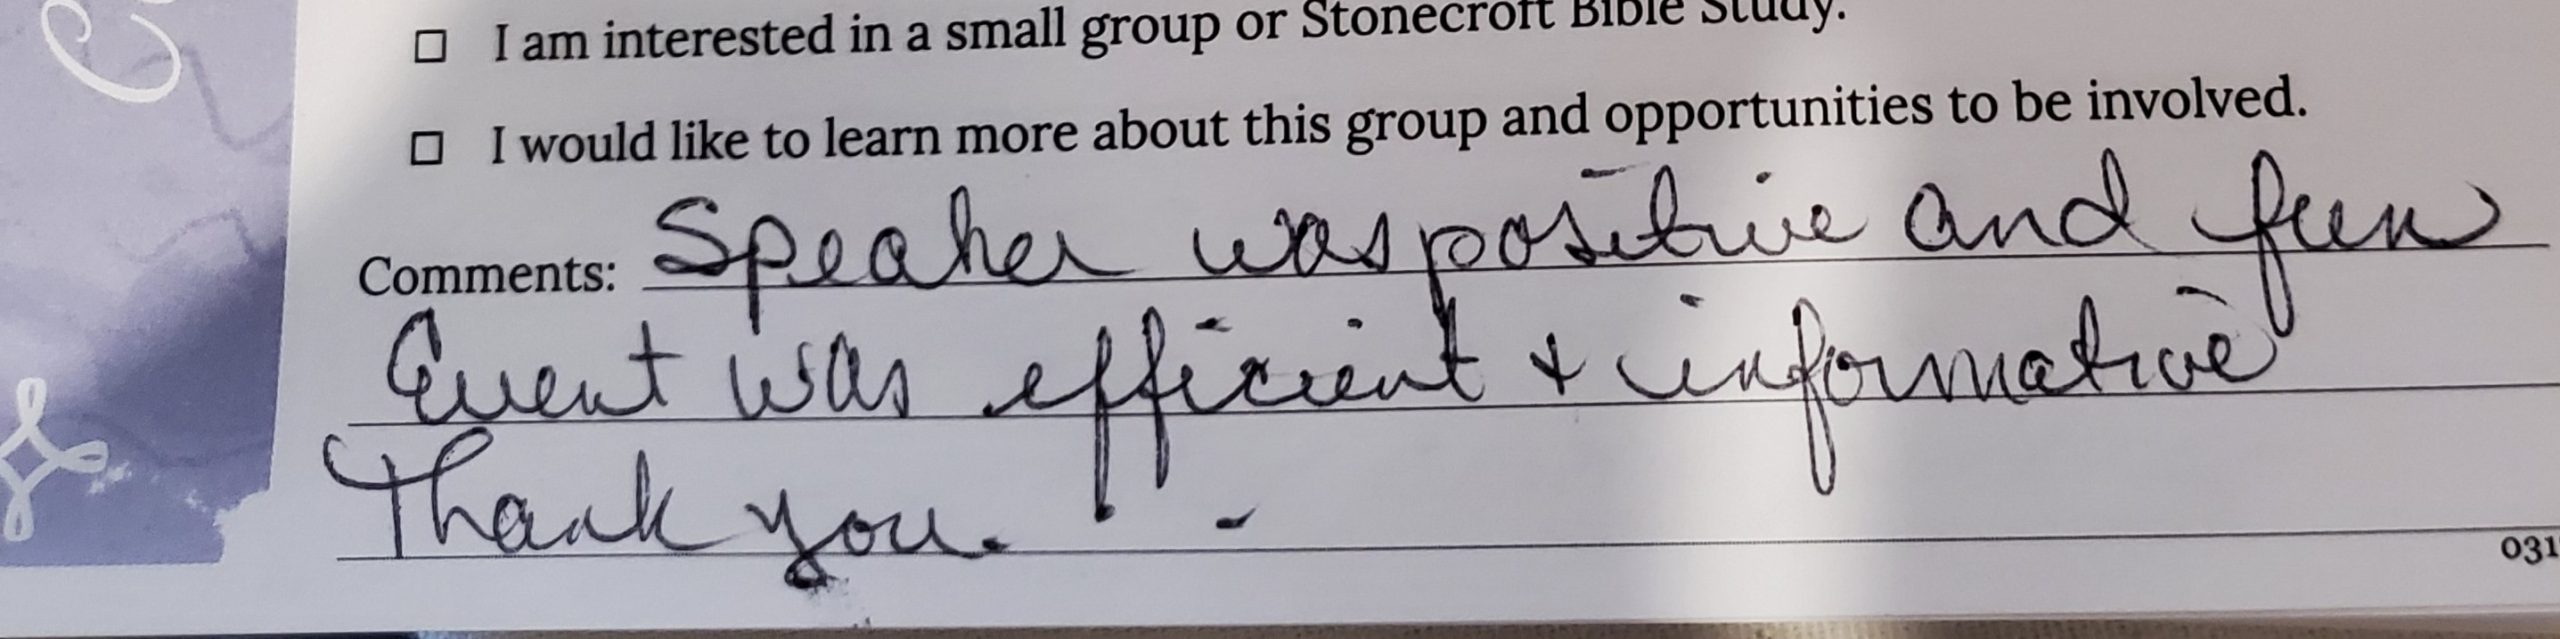 ☐ I am interested in a small group or Stonecroft Bible Study.
☐ I would like to learn more about this group and opportunities to be involved.
Comments: Speaker was positive and fun
Event was efficient + informative
Thank you.
031